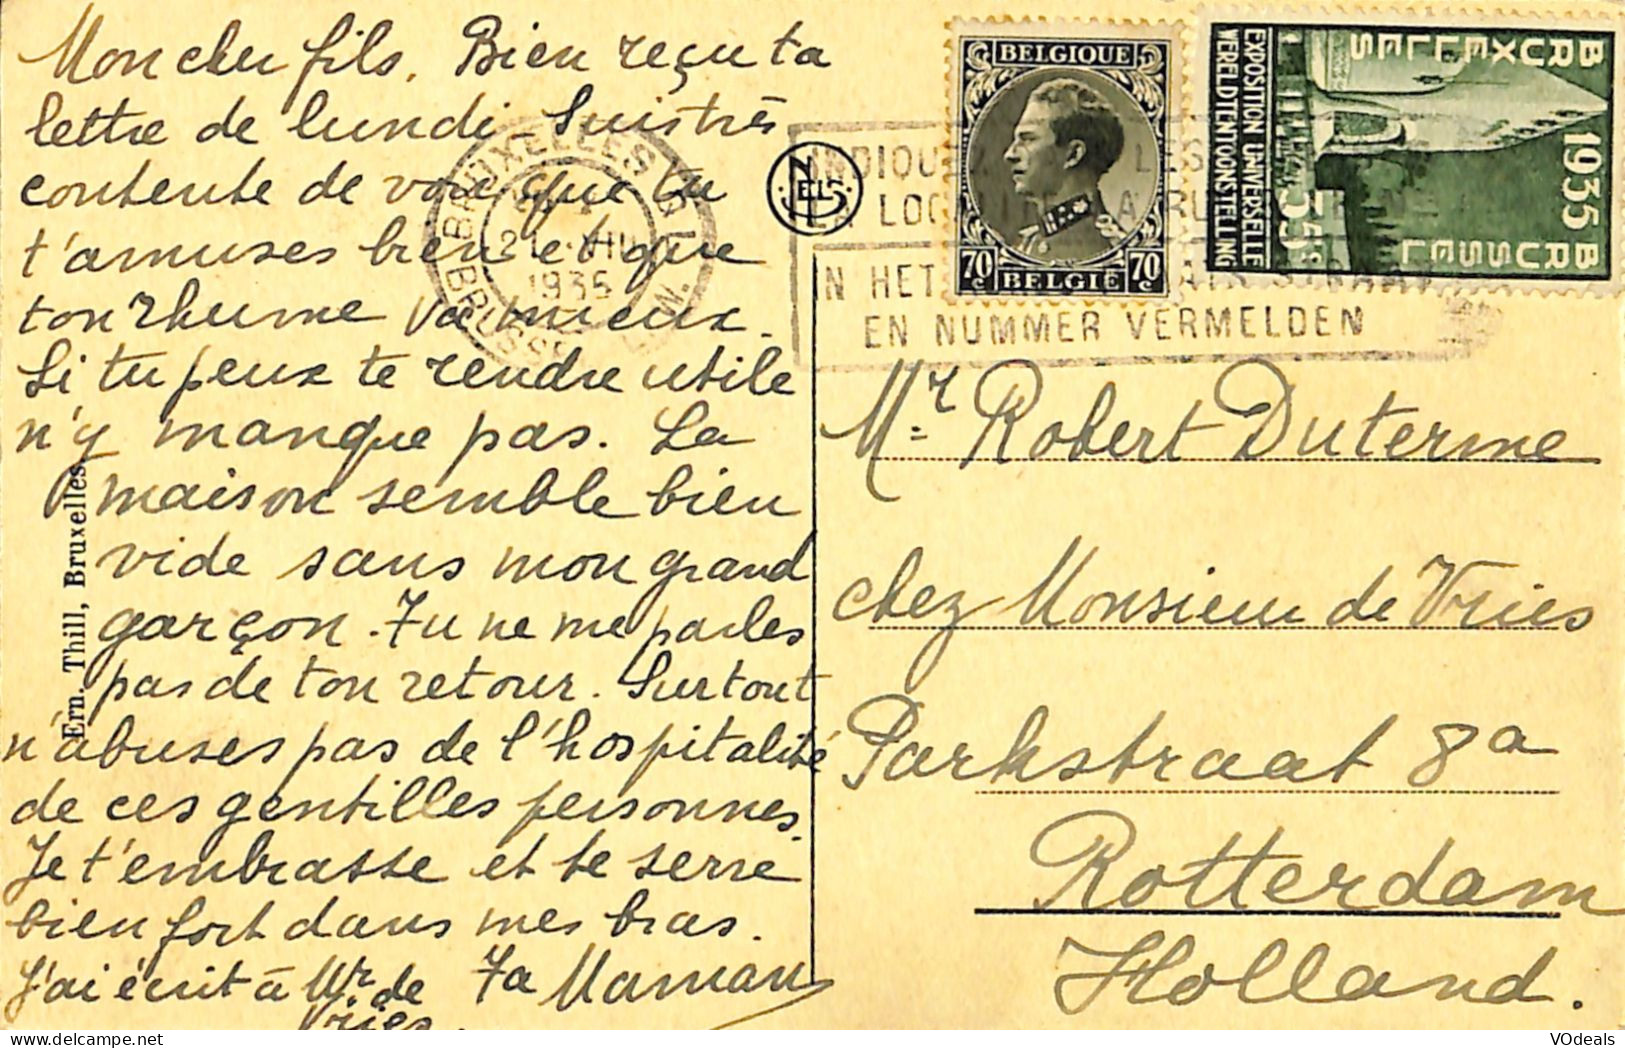 Mon cher fils. Bien reçu ta
lettre de lundi. Suis très
contente de voir que tu
t'amuses bien et que
ton rhume va mieux.
Si tu peux te rendre utile
n'y manque pas. La
maison semble bien
vide sans mon grand
garçon. Tu ne me parles
pas de ton retour. Surtout
n'abuses pas de l'hospitalité
de ces gentilles personnes.
Je t'embrasse et te serre
bien fort dans mes bras.
J'ai écrit à Mr de Vries. Ta Maman
Ern. Thill, Bruxelles
NELS
BRUXELLES
BRUSSEL
1935
EN NUMMER VERMELDEN
BELGIQUE
70 BELGIË 70
BRUXELLES 1935 BRUSSEL
EXPOSITION UNIVERSELLE
WERELDTENTOONSTELLING
35c
Mr Robert Duterme
chez Monsieur de Vries
Parkstraat 8a
Rotterdam
Holland.
VOdeals